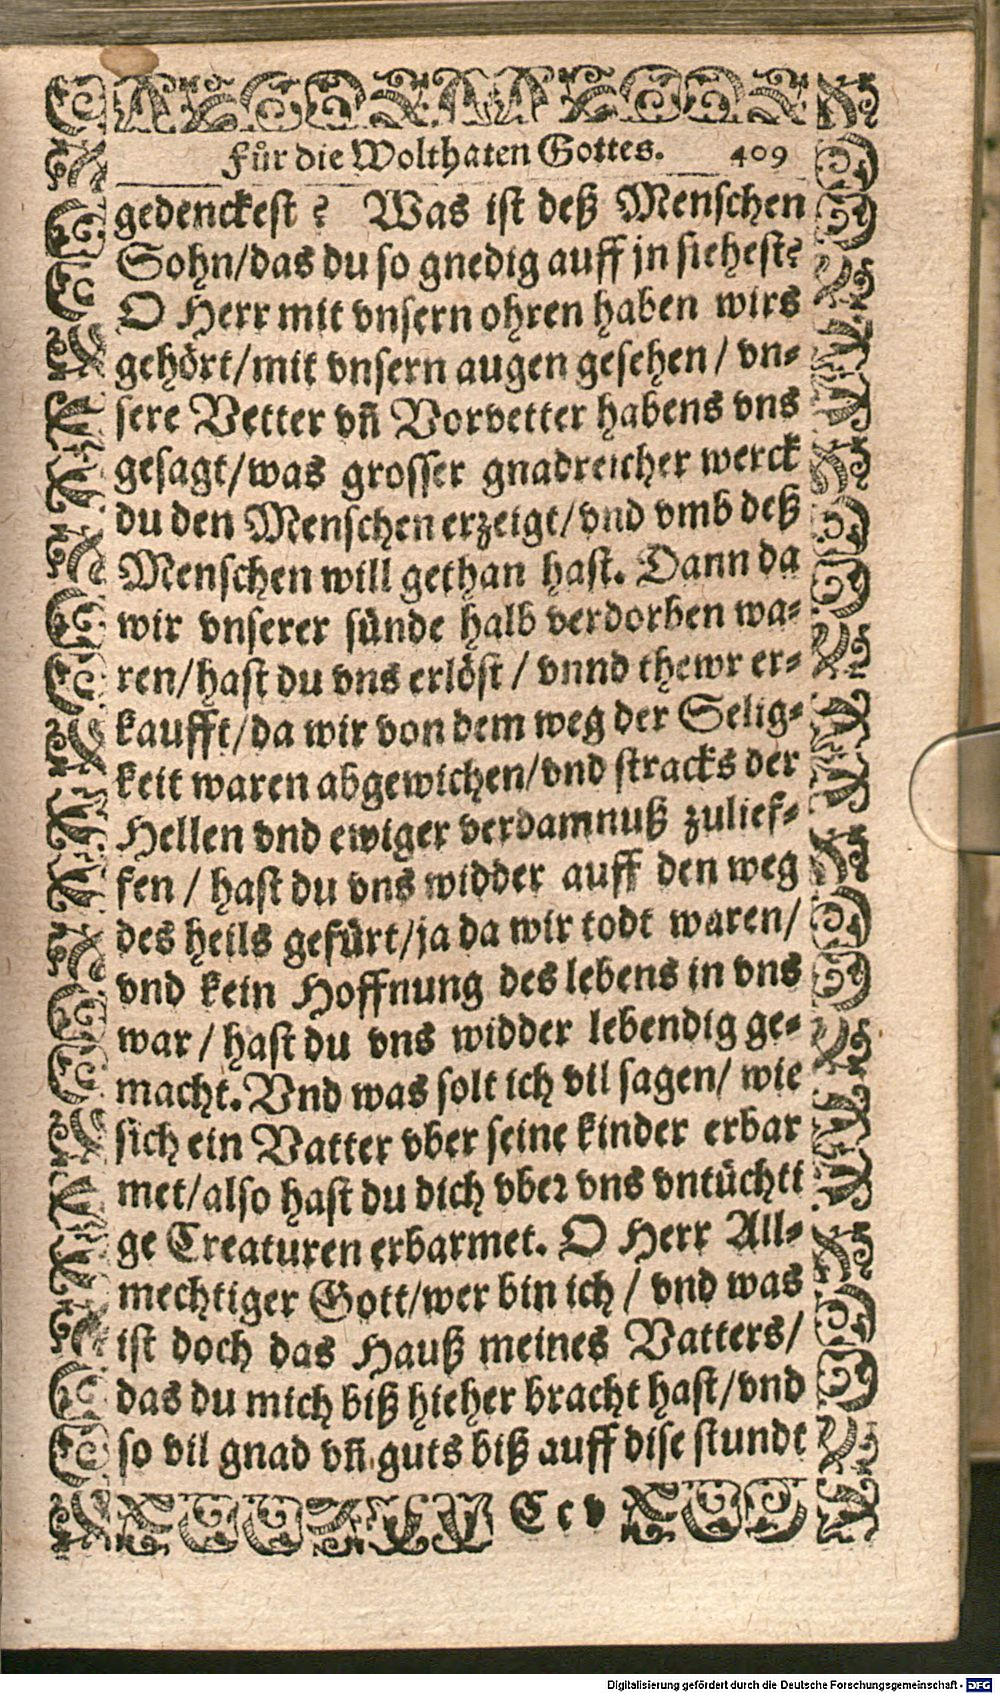 Für die Wolthaten Gottes. 409
gedenckest? Was ist deß Menschen
Sohn/das du so gnedig auff jn siehest?
O Herr mit vnsern ohren haben wirs
gehört/mit vnsern augen gesehen/ vn-
sere Vetter vñ Vorvetter habens vns
gesagt/was grosser gnadreicher werck
du den Menschen erzeigt/vnd vmb deß
Menschen will gethan hast. Dann da
wir vnserer sünde halb verdorben wa-
ren/hast du vns erlöst/ vnnd thewr er-
kaufft/da wir von dem weg der Selig-
keit waren abgewichen/vnd stracks der
Hellen vnd ewiger verdamnuß zulief-
fen/ hast du vns widder auff den weg
des heils gefürt/ja da wir todt waren/
vnd kein Hoffnung des lebens in vns
war/ hast du vns widder lebendig ge-
macht. Vnd was solt ich vil sagen/ wie
sich ein Vatter vber seine kinder erbar
met/also hast du dich vber vns vntüchti
ge Creaturen erbarmet. O Herr All-
mechtiger Gott/wer bin ich/ vnd was
ist doch das Hauß meines Vatters/
das du mich biß hieher bracht hast/vnd
so vil gnad vñ guts biß auff dise stundt
Ccv
Digitalisierung gefördert durch die Deutsche Forschungsgemeinschaft - DFG